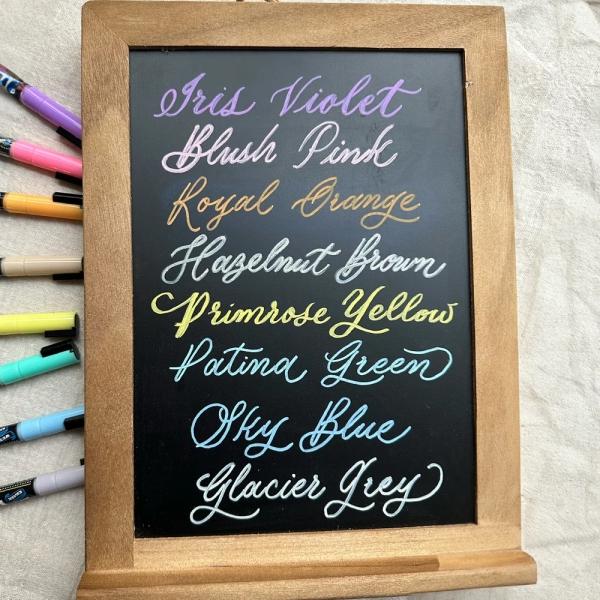 Iris Violet
Blush Pink
Royal Orange
Hazelnut Brown
Primrose Yellow
Patina Green
Sky Blue
Glacier Grey